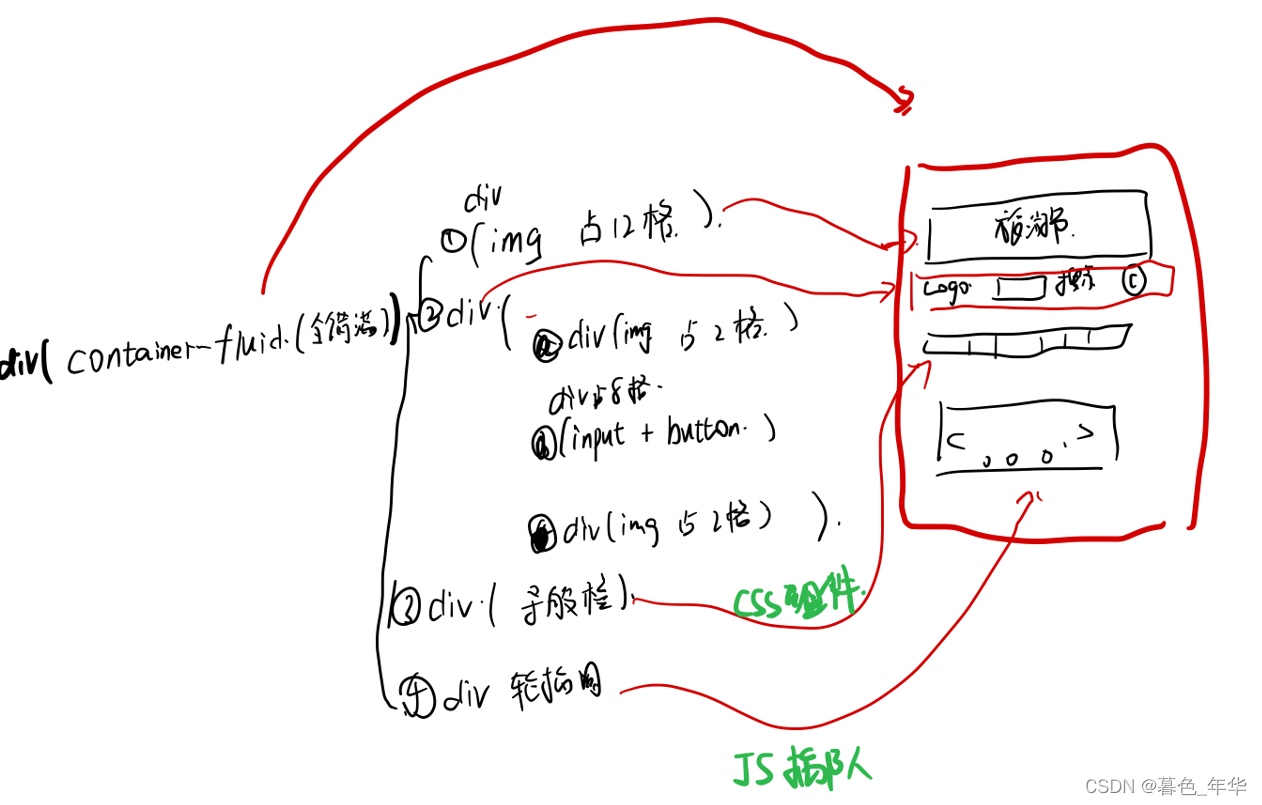 div
①(img 占12格).
②div(
div(img 占2格)
div占8格.
(input + button.)
div(img 占2格) ).
div( container-fluid.(全铺满))
③div.(导航栏).
④div 轮播图
CSS组件.
JS插
Logo 搜索
CSDN @暮色_年华